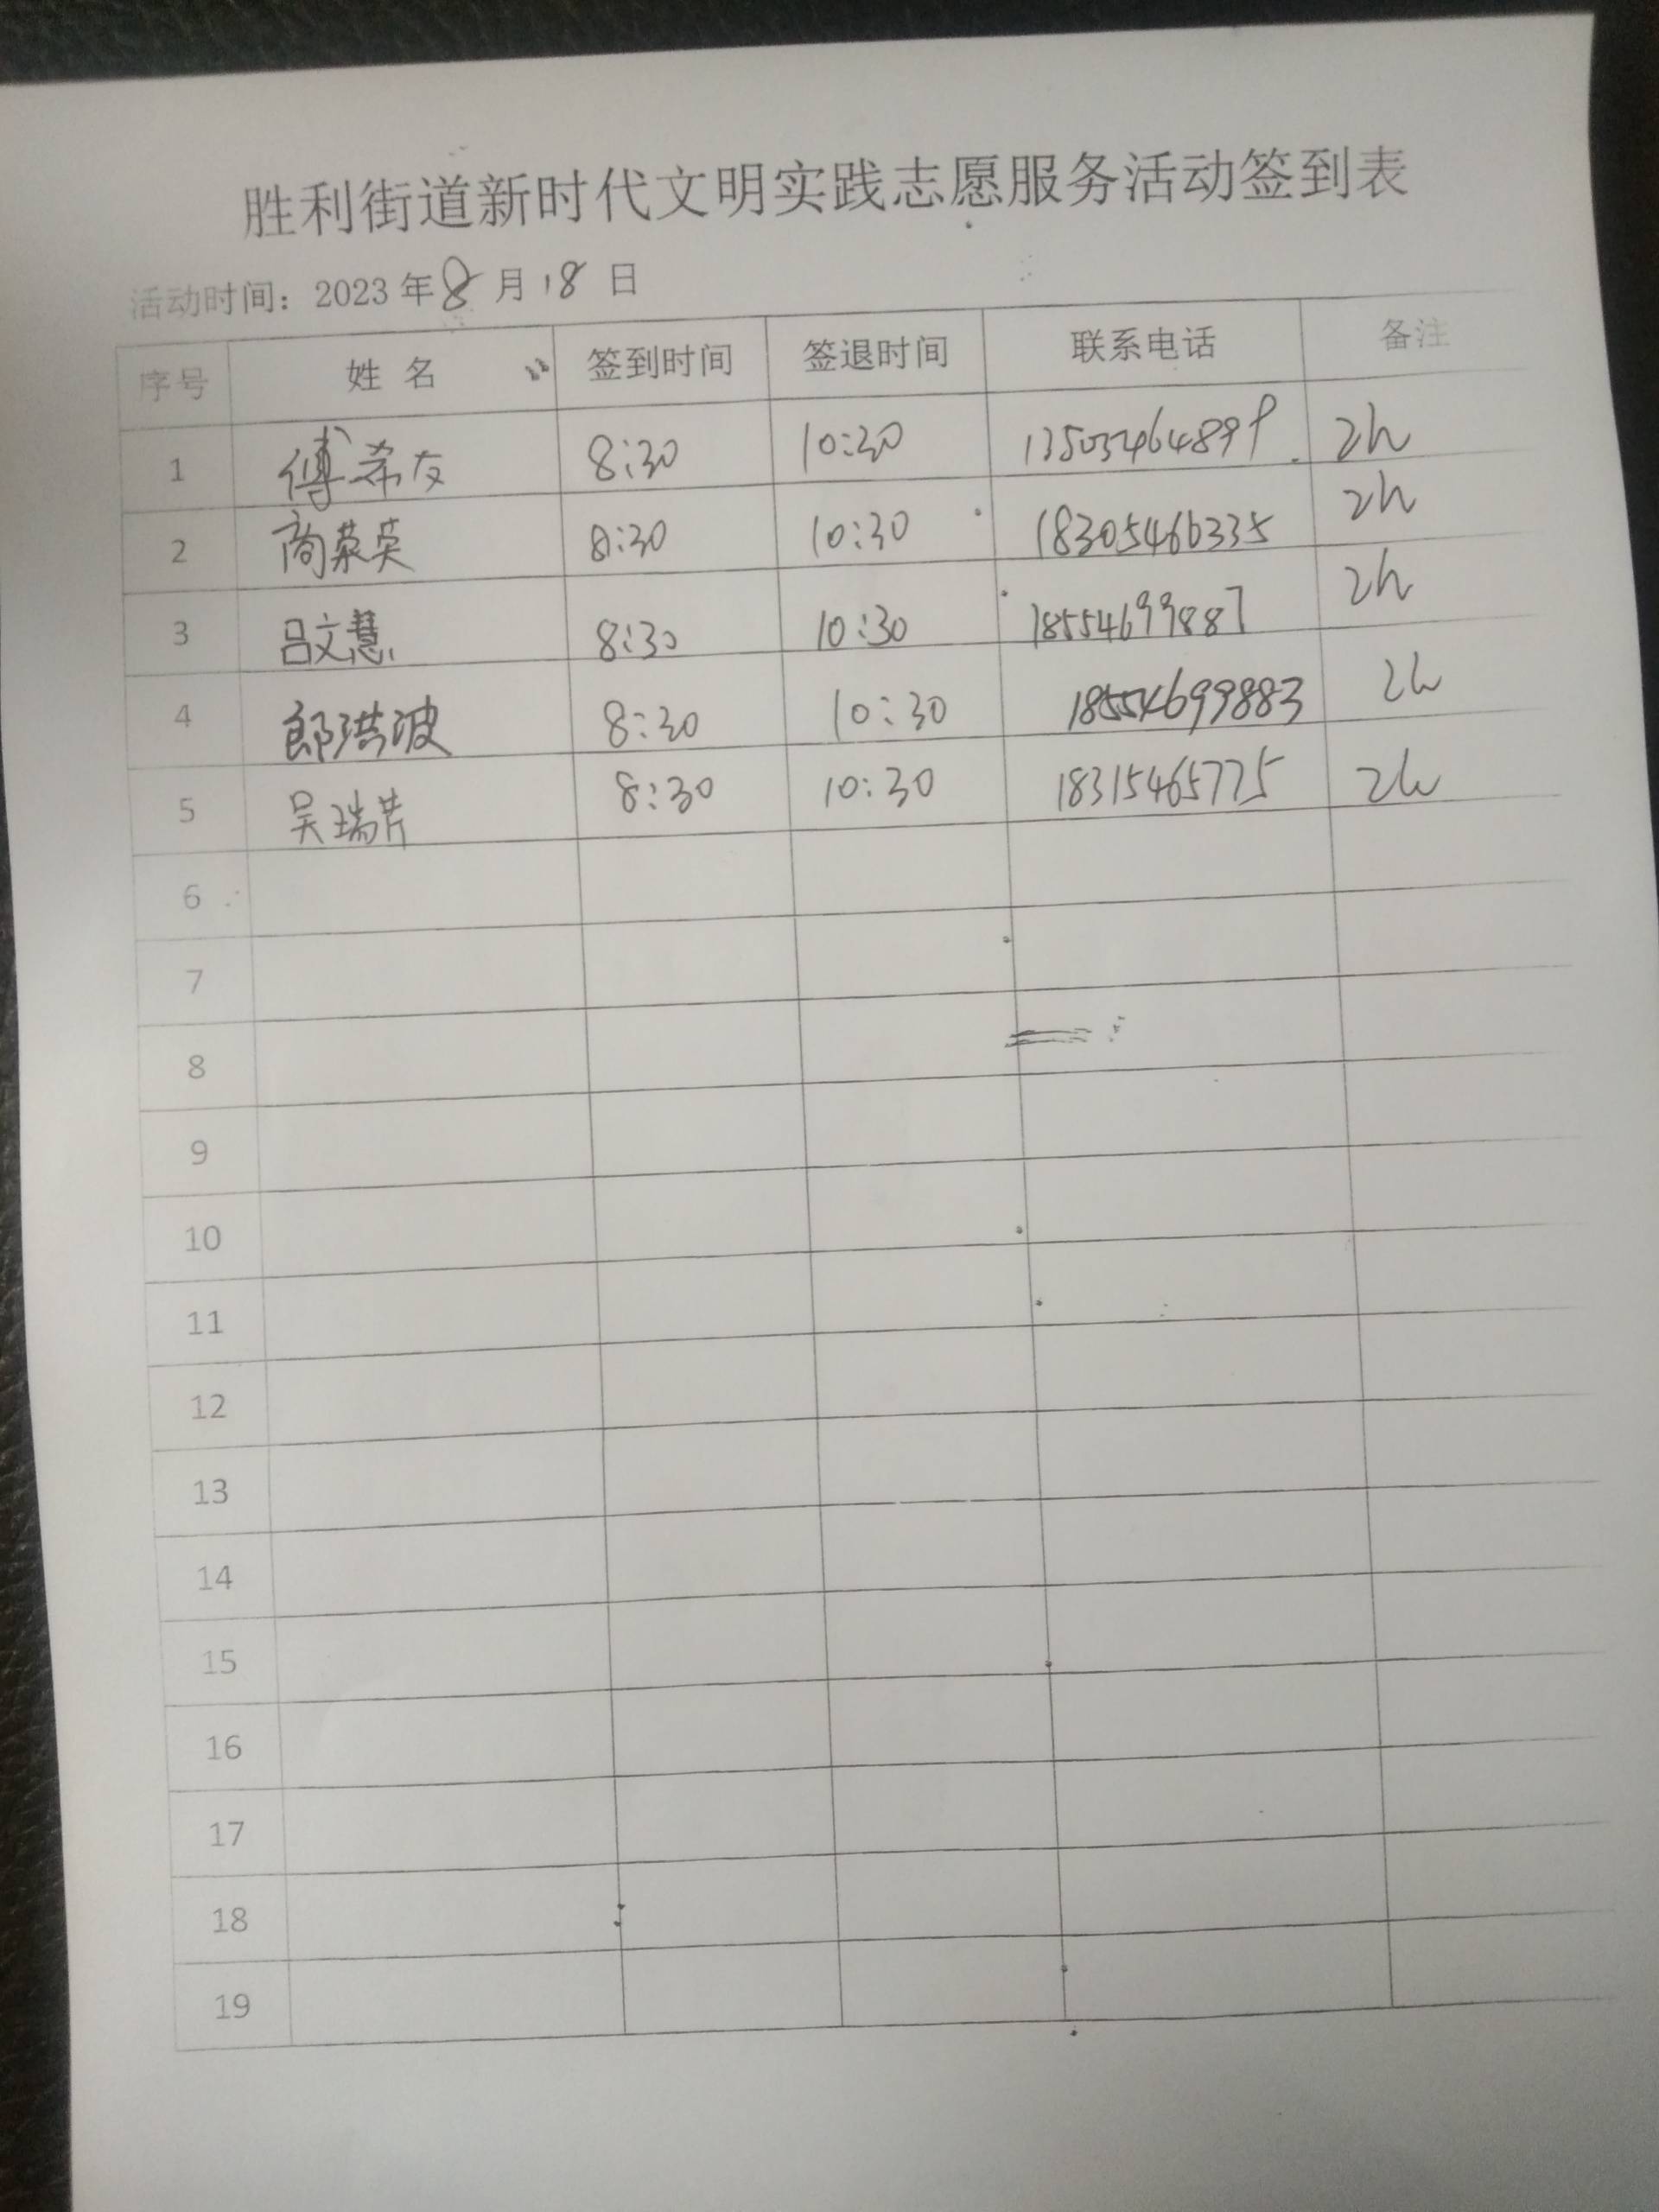 胜利街道新时代文明实践志愿服务活动签到表
活动时间：2023年8月18日
序号 姓 名 签到时间 签退时间 联系电话 备注
1 傅希友 8:30 10:30 2h
2 商荣英 8:30 10:30 18305466335 2h
3 吕文慧 8:30 10:30 18554699887 2h
4 郎洪波 8:30 10:30 18554699883 2h
5 吴瑞芹 8:30 10:30 18315465775 2h
6
7
8
9
10
11
12
13
14
15
16
17
18
19